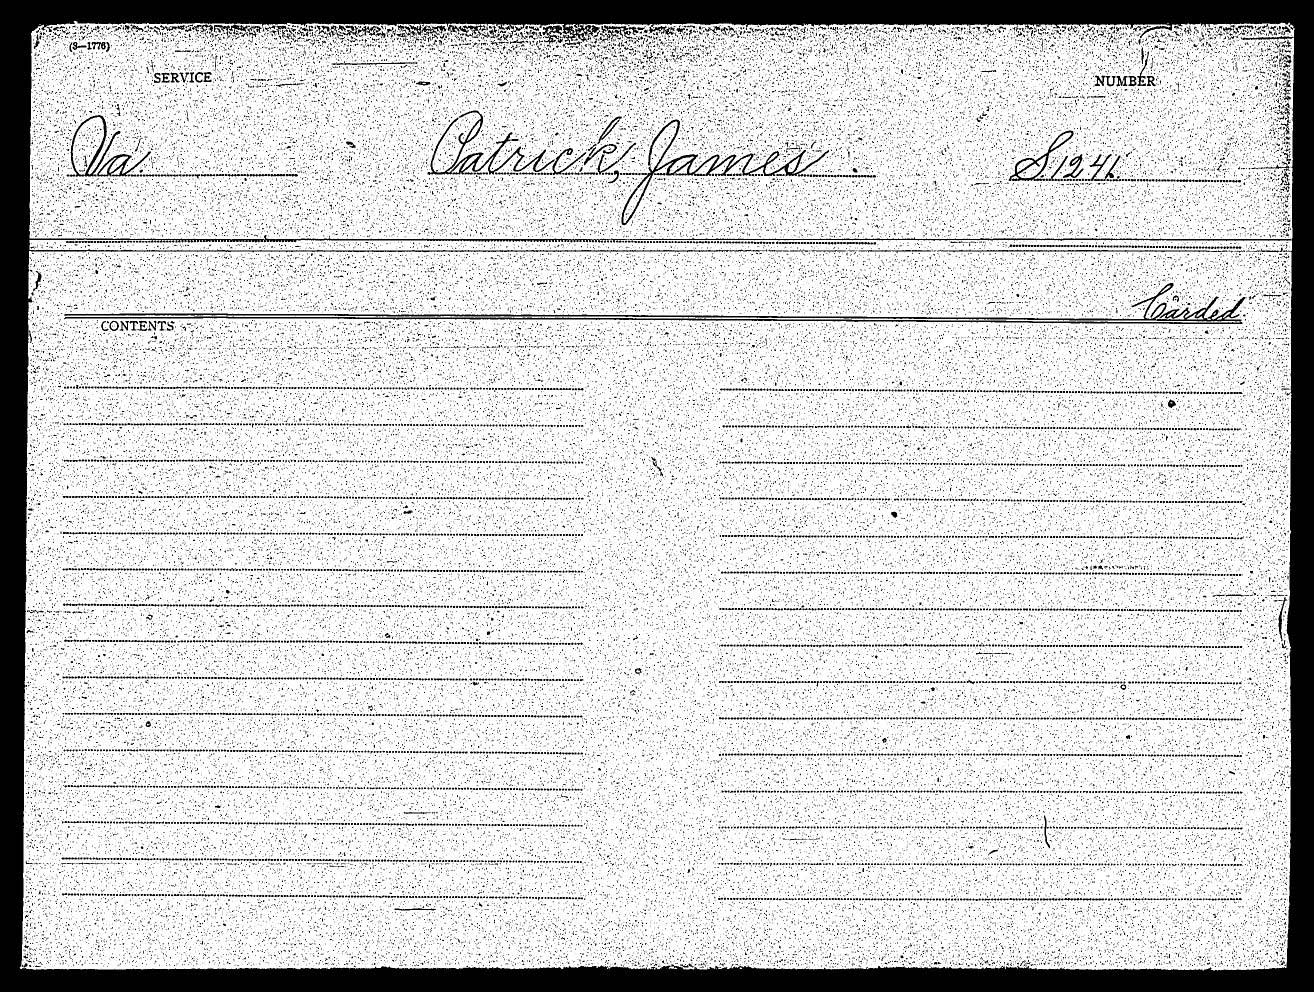 (3—1776)
SERVICE NUMBER
Va. Patrick, James S1241
Carded
CONTENTS